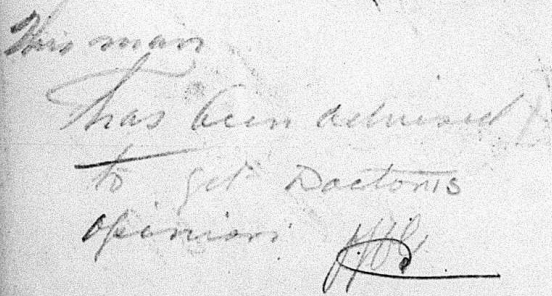 This man
has been advised
to get Doctors
opinion